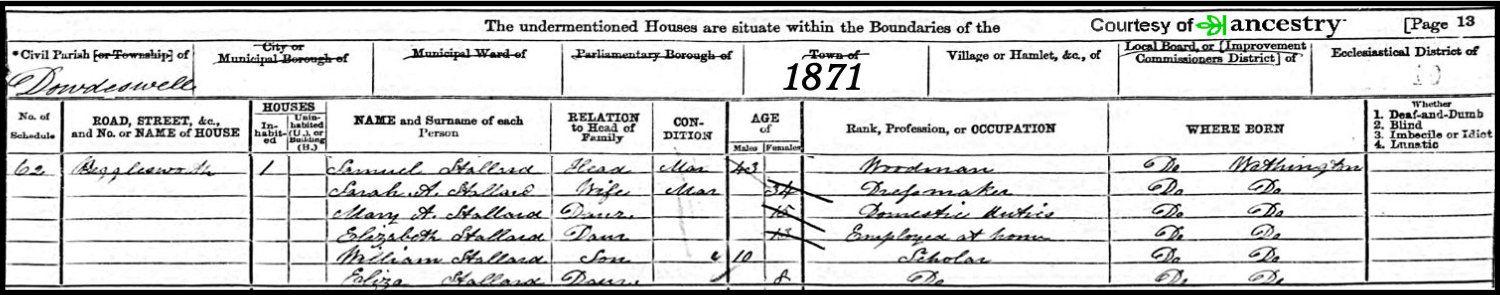 The undermentioned Houses are situate within the Boundaries of the Courtesy of ancestry [Page 13
*Civil Parish [or Township] of City or Municipal Borough of Municipal Ward of Parliamentary Borough of Town of Village or Hamlet, &c., of Local Board, or [Improvement Commissioners District] of Ecclesiastical District of
Dowdeswell 1871
No. of Schedule ROAD, STREET, &c., and No. or NAME of HOUSE HOUSES Inhabited Uninhabited (U.), or Building (B.) NAME and Surname of each Person RELATION to Head of Family CONDITION AGE of Males Females Rank, Profession, or OCCUPATION WHERE BORN Whether 1. Deaf-and-Dumb 2. Blind 3. Imbecile or Idiot 4. Lunatic
62 1 Samuel Stallard Head Mar 43 Woodman Do Withington
Sarah A. Stallard Wife Mar 34 Dressmaker Do Do
Mary A. Stallard Daur 15 Domestic duties Do Do
Elizabeth Stallard Daur 13 Employed at home Do Do
William Stallard Son 10 Scholar Do Do
Eliza Stallard Daur 8 Do Do Do